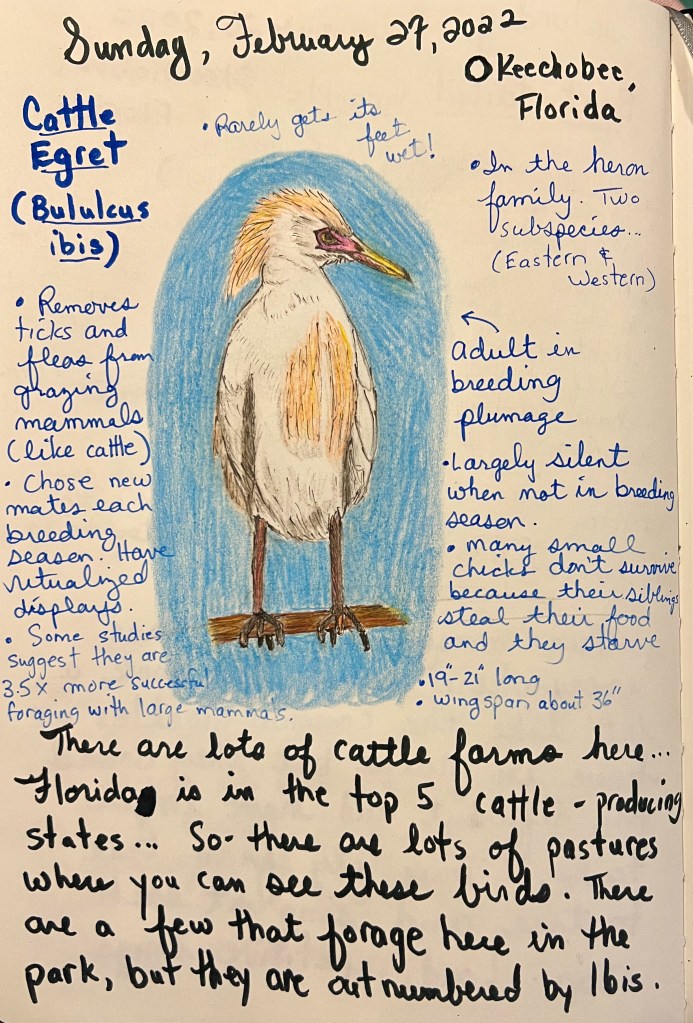 Sunday, February 27, 2022
Okeechobee,
Florida
Cattle
Egret
(Bululcus
ibis)
• Rarely gets its
feet
wet!
• In the heron
family. Two
subspecies...
(Eastern &
Western)
• Removes
ticks and
fleas from
grazing
mammals
(like cattle)
• Chose new
mates each
breeding
season. Have
ritualized
displays.
• Some studies
suggest they are
3.5x more successful
foraging with large mammals.
adult in
breeding
plumage
• Largely silent
when not in breeding
season.
• many small
chicks don't survive
because their siblings
steal their food
and they starve
• 19"-21" long
• wingspan about 36"
There are lots of cattle farms here...
Florida is in the top 5 cattle-producing
states... So there are lots of pastures
where you can see these birds. There
are a few that forage here in the
park, but they are outnumbered by Ibis.